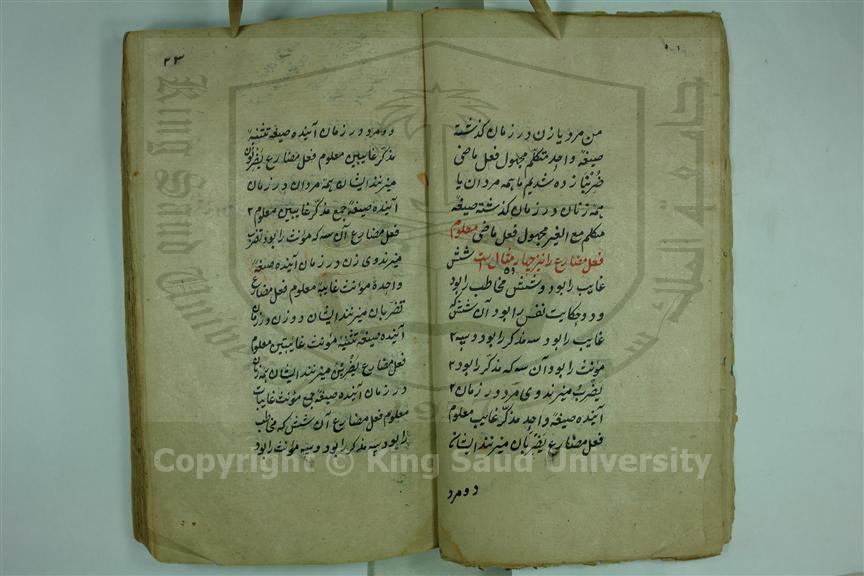 من مرد یا زن در زمان گذشته
صیغهٔ واحد متکلم مجهول فعل ماضی
ضُرِبْنا زده شدیم ما همه مردان یا
همه زنان در زمان گذشته صیغهٔ
متکلم مع الغیر مجهول فعل ماضی معلوم
فعل مضارع را نیز چهارده مثال است شش
غایب را بود و شش مخاطب را بود
و دو حکایت نفس را بود آن شش که
غایب را بود سه مذکر را بود و سه ۲
مؤنث را بود و آن سه که مذکر را بود ۲
یضرب میزند وی مرد در زمان ۲
آینده صیغهٔ واحد مذکر غایب معلوم
فعل مضارع یضربان میزنند ایشان
دو مرد
۲۳
دو مرد در زمان آینده صیغهٔ تثنیه
مذکر غایبین معلوم فعل مضارع یضربون
میزنند ایشان همه مردان در زمان
آینده صیغهٔ جمع مذکر غایبین معلوم ۲
فعل مضارع آن سه که مؤنث را بود تضرب
میزند وی زن در زمان آینده صیغهٔ
واحدهٔ مؤنث غایبه معلوم فعل مضارع
تضربان میزنند ایشان دو زن در زمان
آینده صیغهٔ تثنیه مؤنث غایبتین معلوم
فعل مضارع یضربن میزنند ایشان همه زنان
در زمان آینده صیغهٔ جمع مؤنث غایبات
معلوم فعل مضارع آن شش که مخاطب
را بود سه مذکر را بود و سه مؤنث را بود
King Saud University
جامعة الملك
Copyright © King Saud University